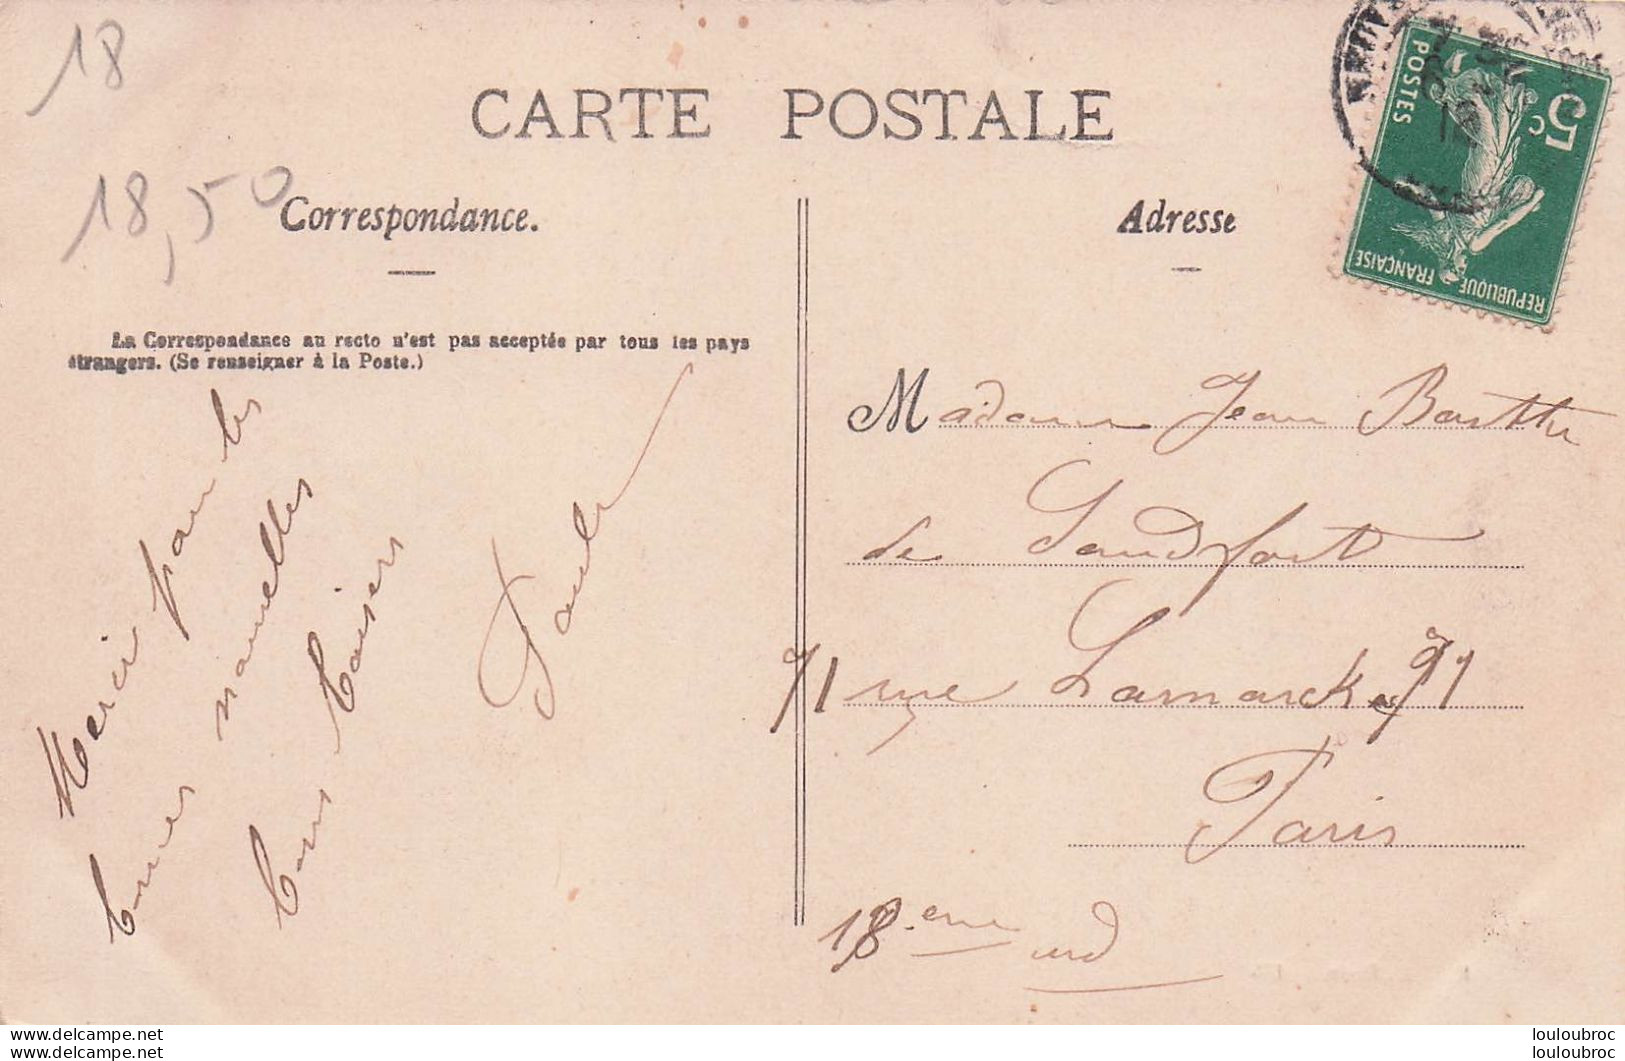 18
CARTE POSTALE
18,50
Correspondance.
Adresse
La Correspondance au recto n'est pas acceptée par tous les pays
étrangers. (Se renseigner à la Poste.)
Merci pour les
bonnes nouvelles
bons baisers
Paule
5c
POSTES
REPUBLIQUE FRANÇAISE
Madame Jean
de Sandfort
71 rue Lamarck 71
Paris
18.eme
delcampe.net
louloubroc